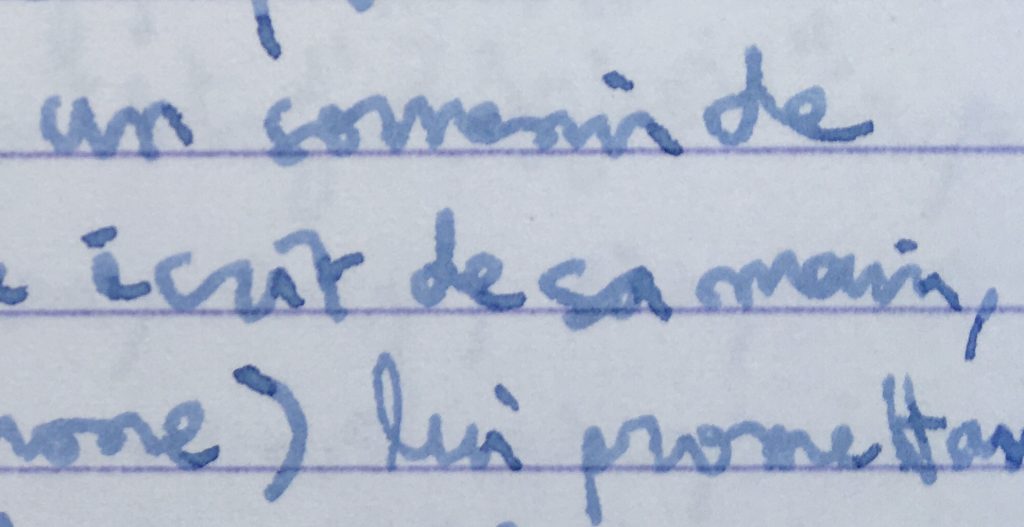 un souvenir de
écrit de sa main,
) lui promettan